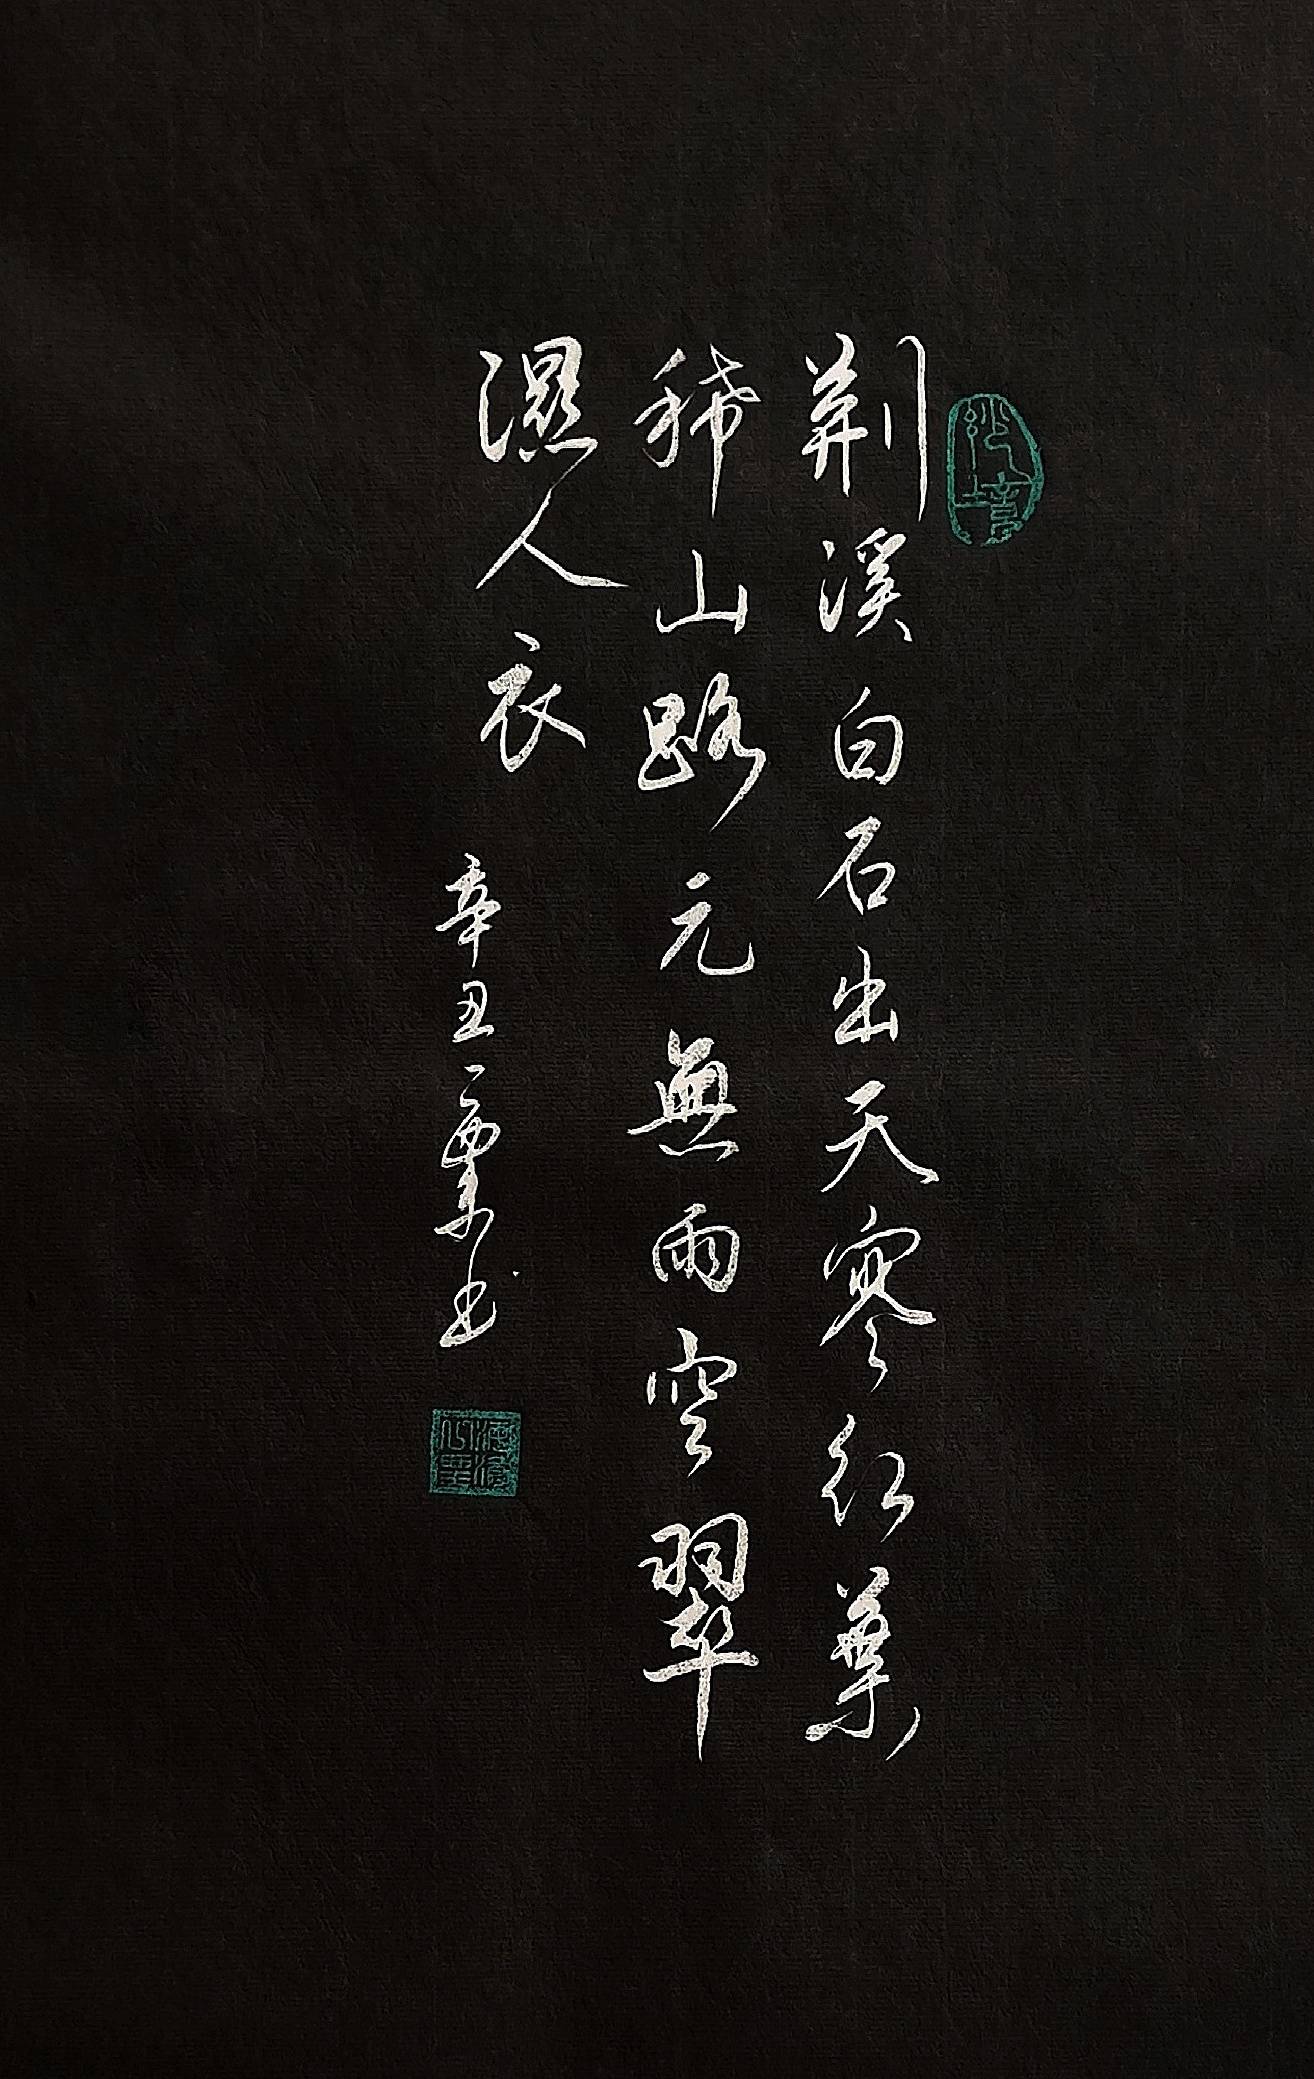 荆溪白石出天寒红葉
稀山路元無雨空翠
濕人衣
辛丑一粟书